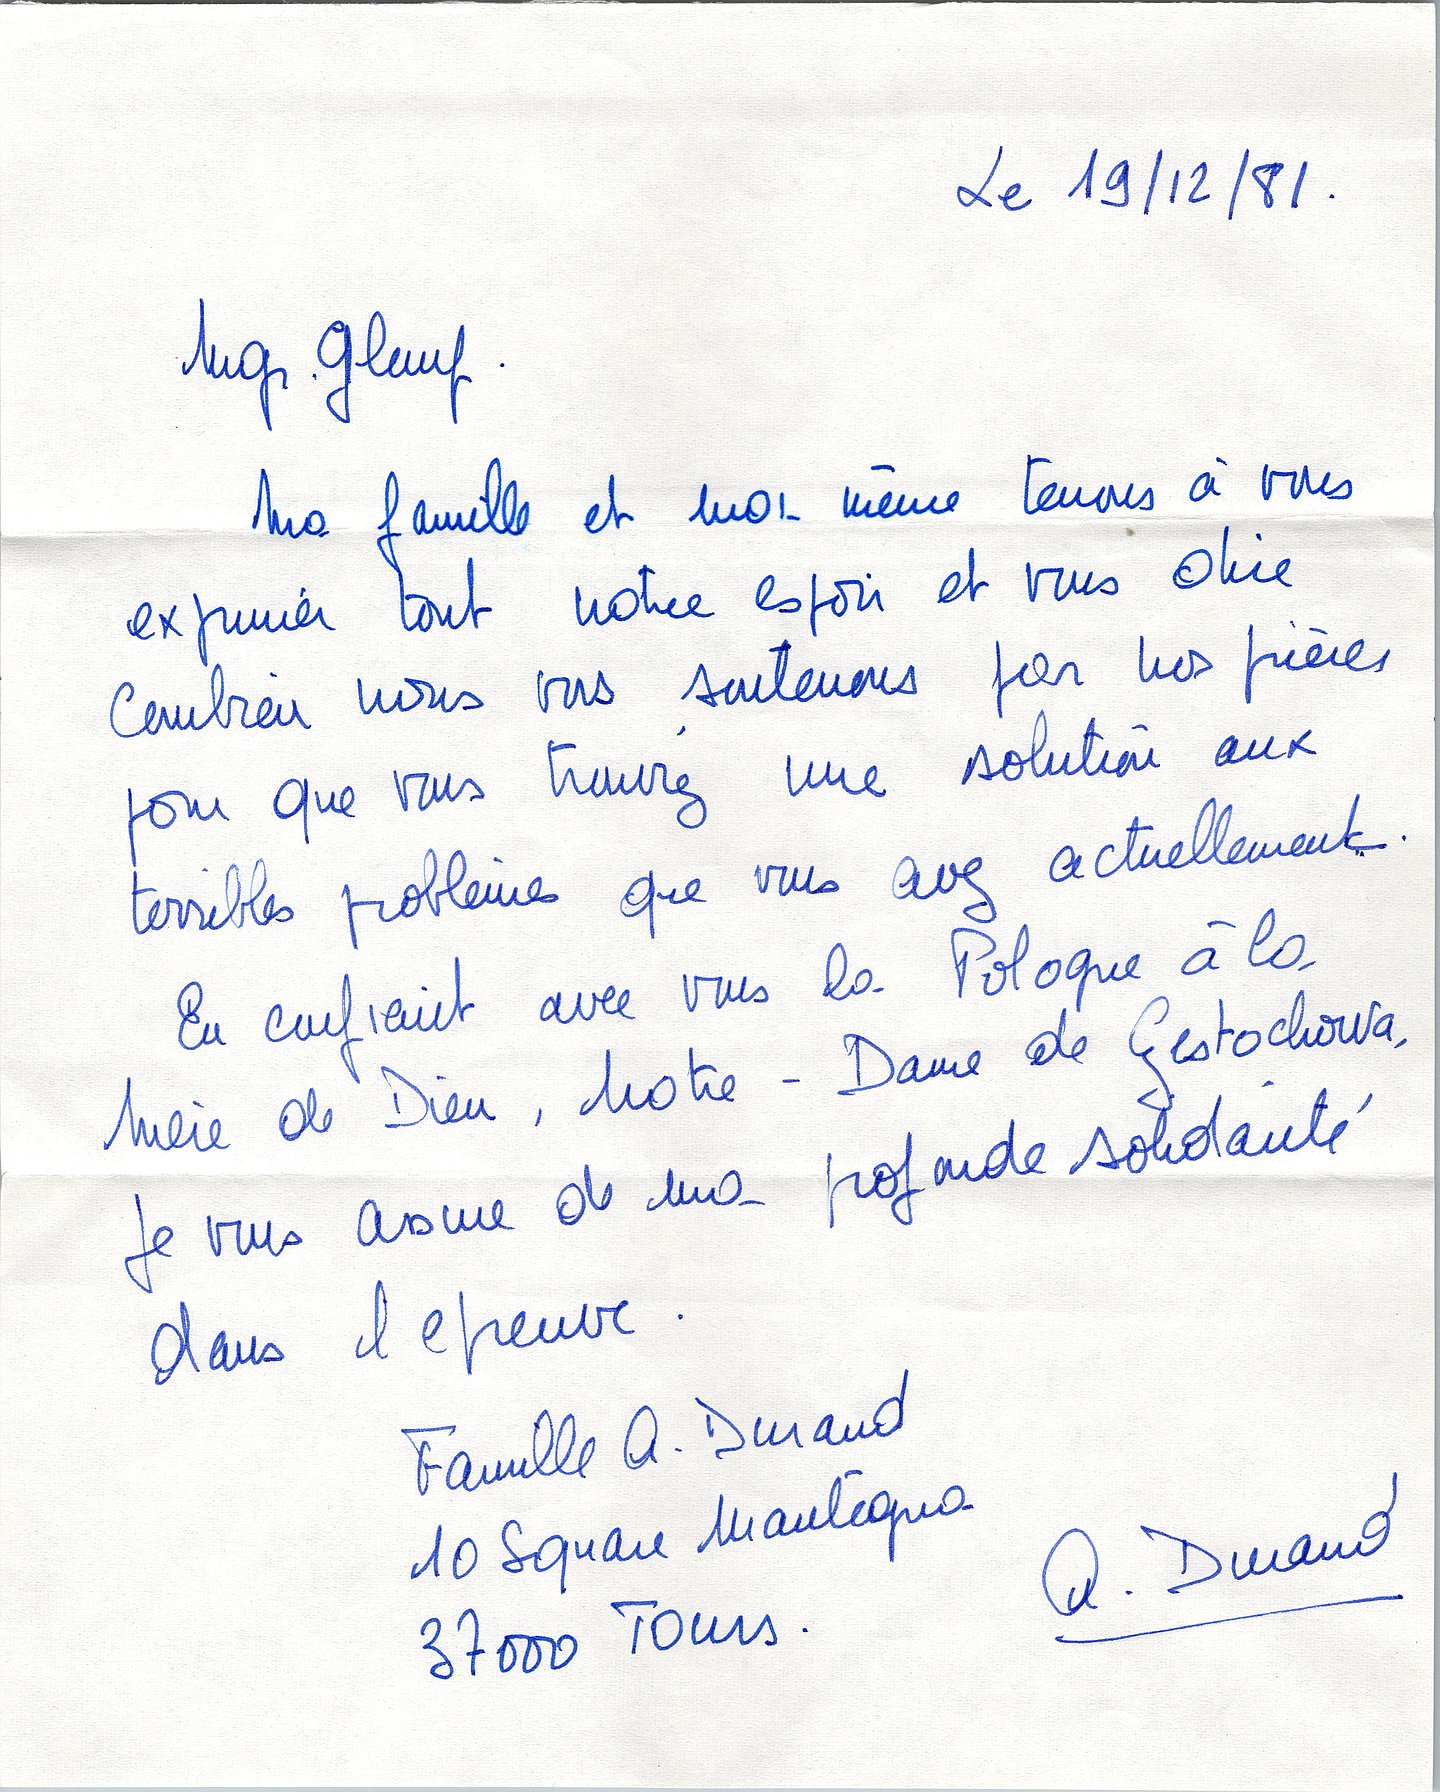 Le 19/12/81.
Mgr. Glemp.
Ma famille et moi même tenons à vous
exprimer tout notre espoir et vous dire
combien nous vous soutenons par nos prières
pour que vous trouviez une solution aux
terribles problèmes que vous avez actuellement.
En confiant avec vous la Pologne à la
Mère de Dieu, Notre-Dame de Czestochowa,
je vous assure de ma profonde solidarité
dans l'epreuve.
Famille A. Durand
10 Square Mantegna
37000 Tours.
A. Durand